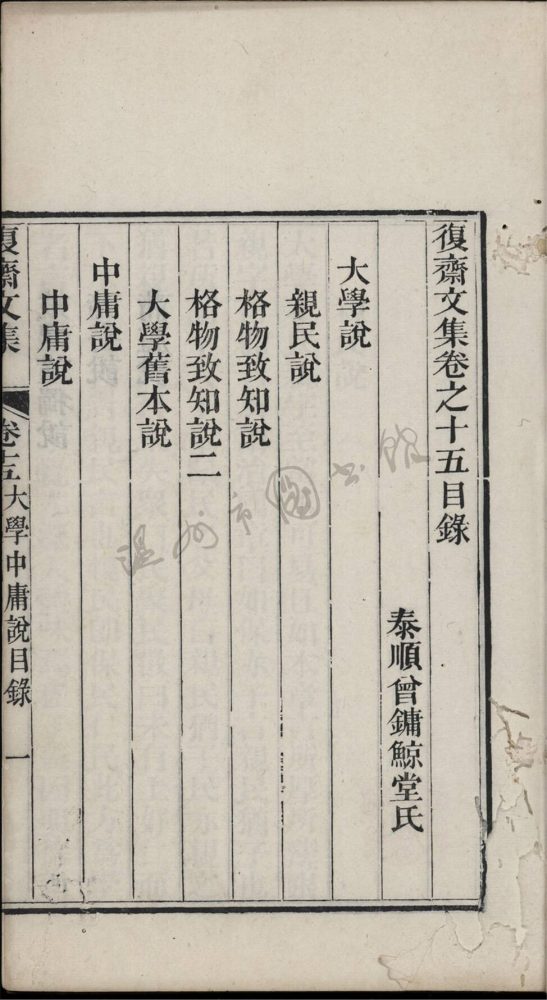 復齋文集卷之十五目錄
泰順曾鏞鯨堂氏
大學說
親民說
格物致知說
格物致知說二
大學舊本說
中庸說
中庸說
復齋文集 卷十五 大學中庸說目錄 一
温州市圖书館